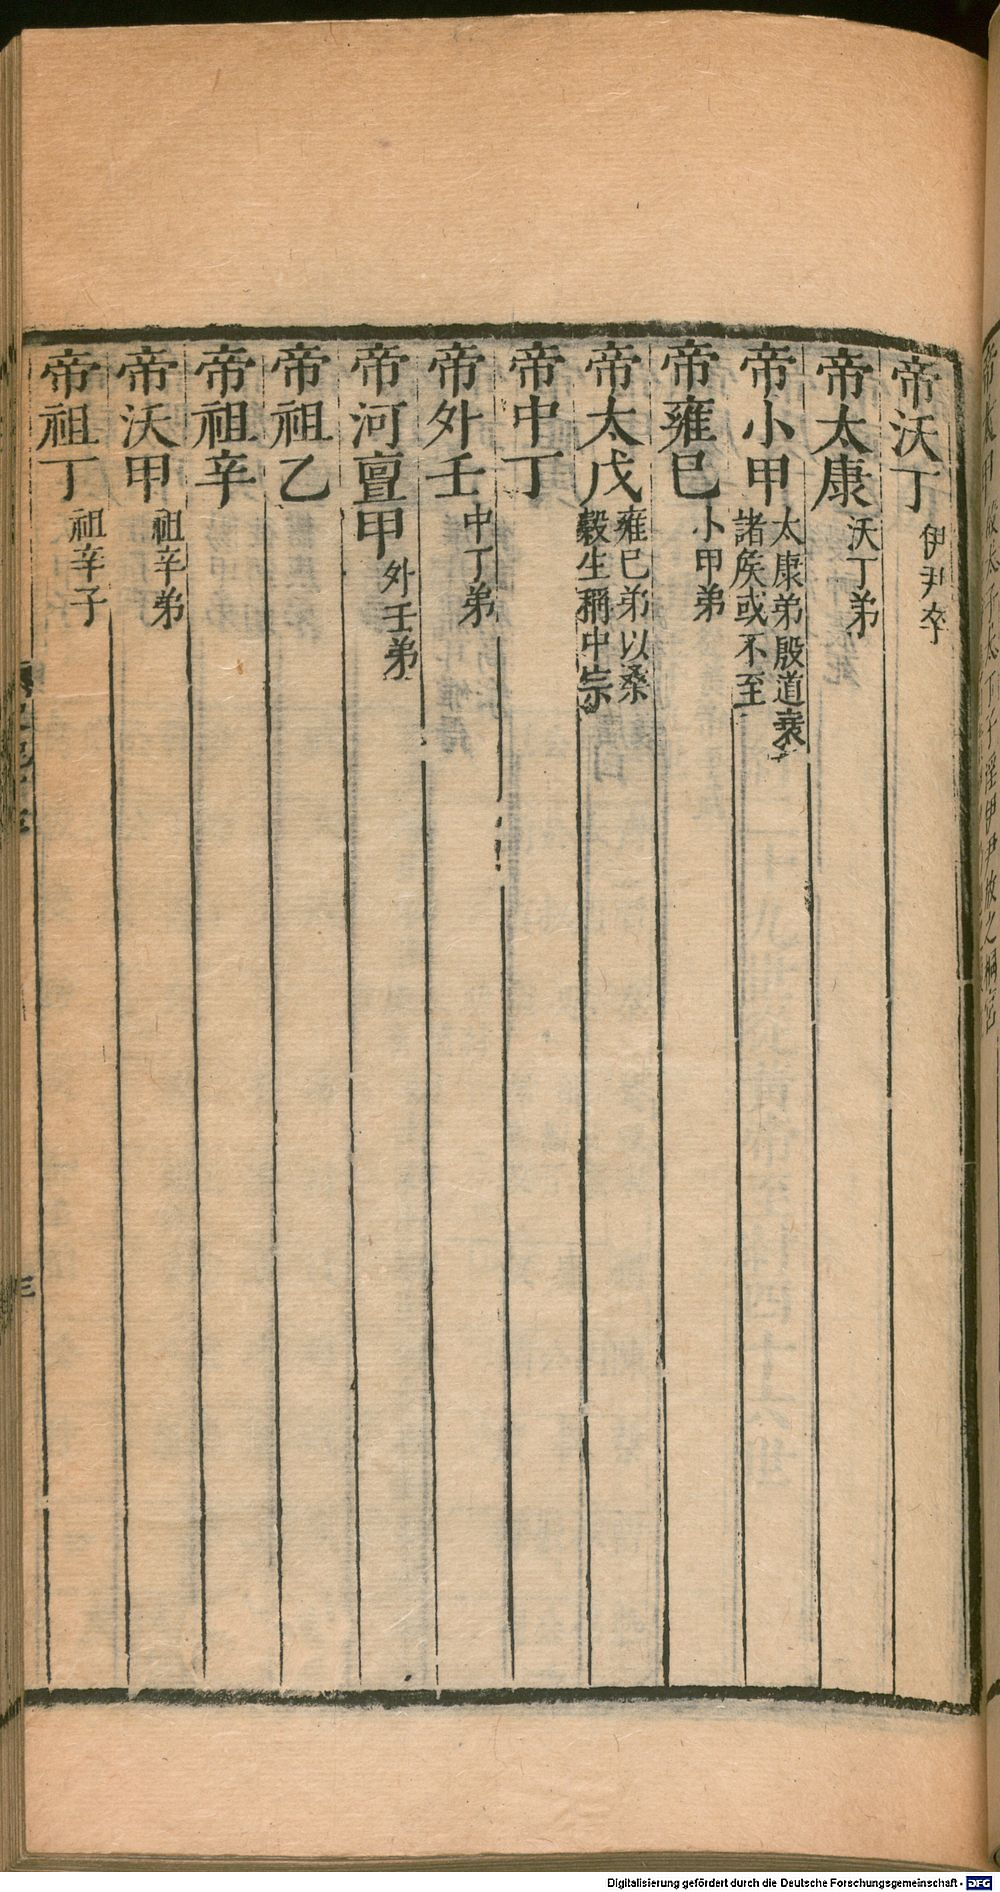 帝沃丁 伊尹卒
帝太康 沃丁弟
帝小甲 太康弟殷道衰
諸矦或不至
帝雍巳 小甲弟
帝太戊 雍巳弟以桑
榖生稱中宗
帝中丁
帝外壬 中丁弟
帝河亶甲 外壬弟
帝祖乙
帝祖辛
帝沃甲 祖辛弟
帝祖丁 祖辛子
三
Digitalisierung gefördert durch die Deutsche Forschungsgemeinschaft - DFG